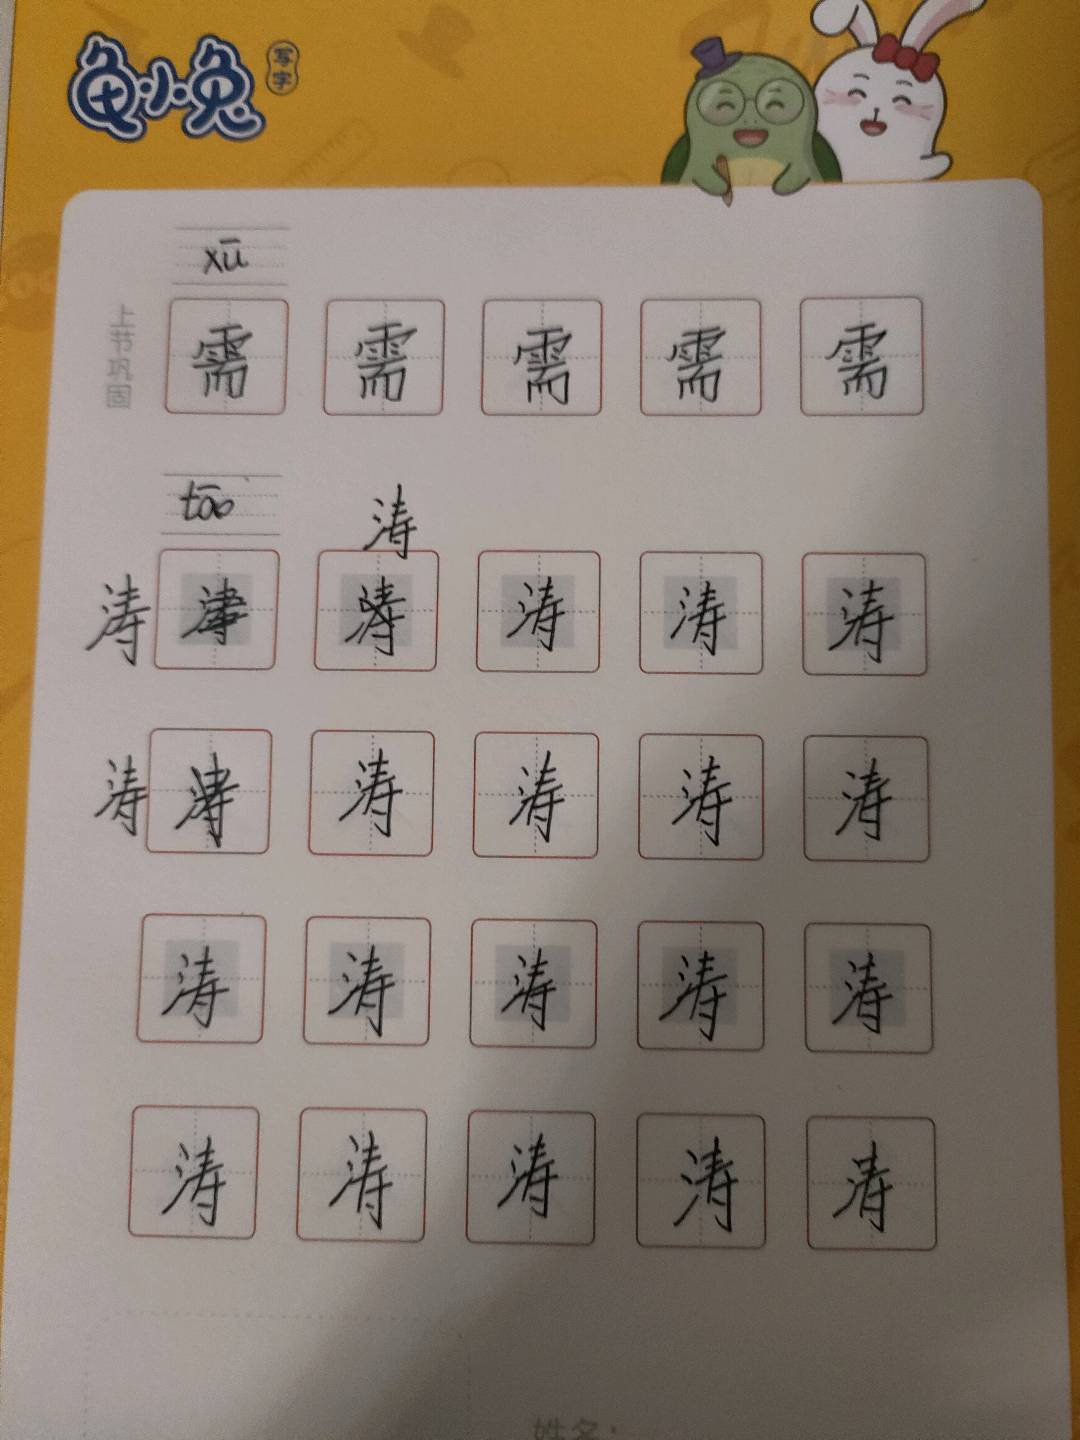 龟小兔 写字
xū
上节巩固
需 需 需 需 需
tāo
涛
涛 涛 涛 涛 涛 涛
涛 涛 涛 涛 涛 涛
涛 涛 涛 涛 涛
涛 涛 涛 涛 涛
姓名: